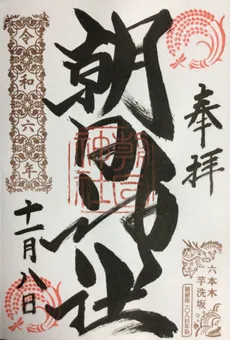 奉拝
朝日神社
令和六年
十一月八日
六本木
芋洗坂